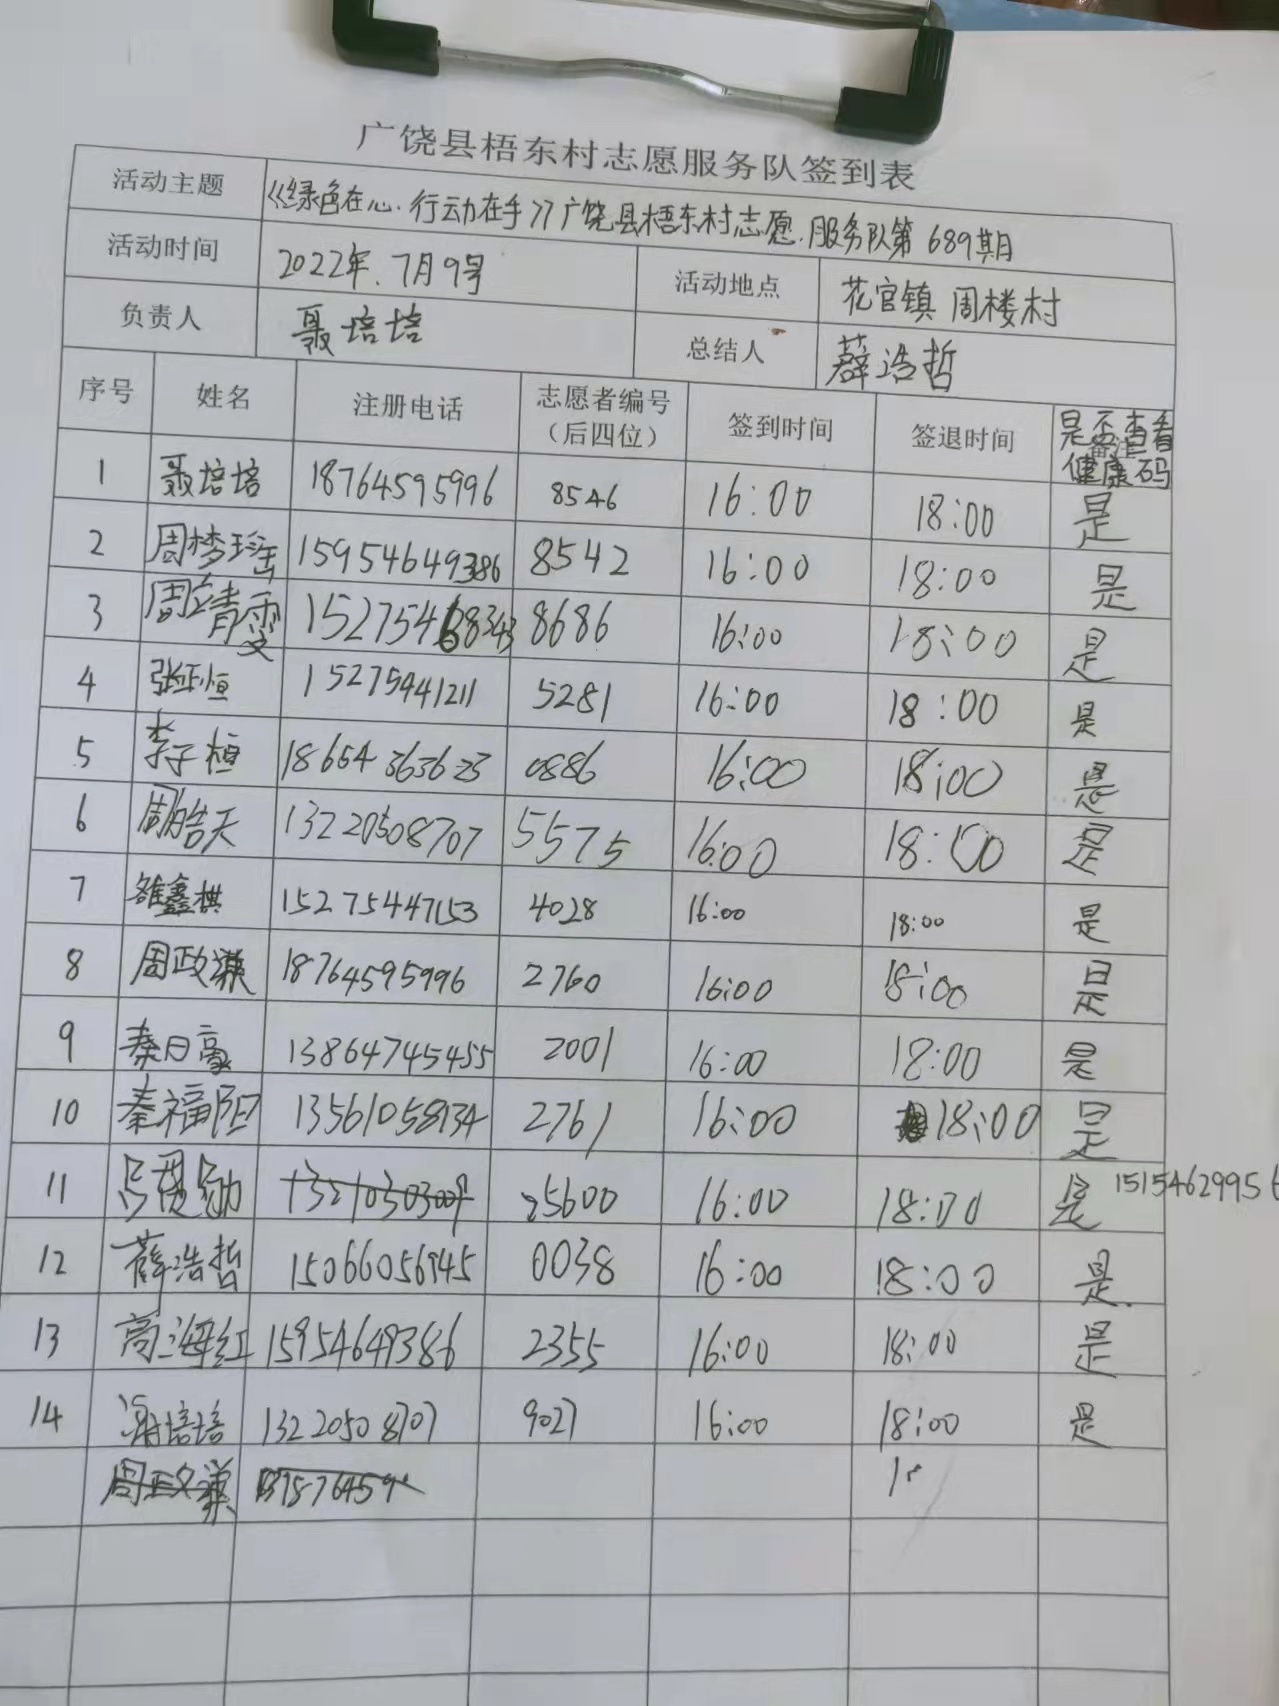 广饶县梧东村志愿服务队签到表
活动主题 《绿色在心.行动在手》广饶县梧东村志愿.服务队第689期
活动时间 2022年.7月9号 活动地点 花官镇 周楼村
负责人 聂培培 总结人 薛浩哲
序号 姓名 注册电话 志愿者编号（后四位） 签到时间 签退时间 是否查看健康码
1 聂培培 18764595996 8546 16:00 18:00 是
2 周梦瑶 15954649386 8542 16:00 18:00 是
3 周靖雯 15275468343 8686 16:00 18:00 是
4 张正恒 15275441211 5281 16:00 18:00 是
5 李子桓 18654363623 0886 16:00 18:00 是
6 周皓天 13220508707 5575 16:00 18:00 是
7 雒鑫棋 15275447153 4028 16:00 18:00 是
8 周政谦 18764595996 2760 16:00 18:00 是
9 秦日豪 13864745455 2001 16:00 18:00 是
10 秦福阳 13561058134 2761 16:00 18:00 是
11 13210303009 5600 16:00 18:00 是 1515462995
12 薛浩哲 15066056945 0038 16:00 18:00 是.
13 高海红 15954649386 2355 16:00 18:00 是
14 谢培培 13220508707 9027 16:00 18:00 是
周政谦